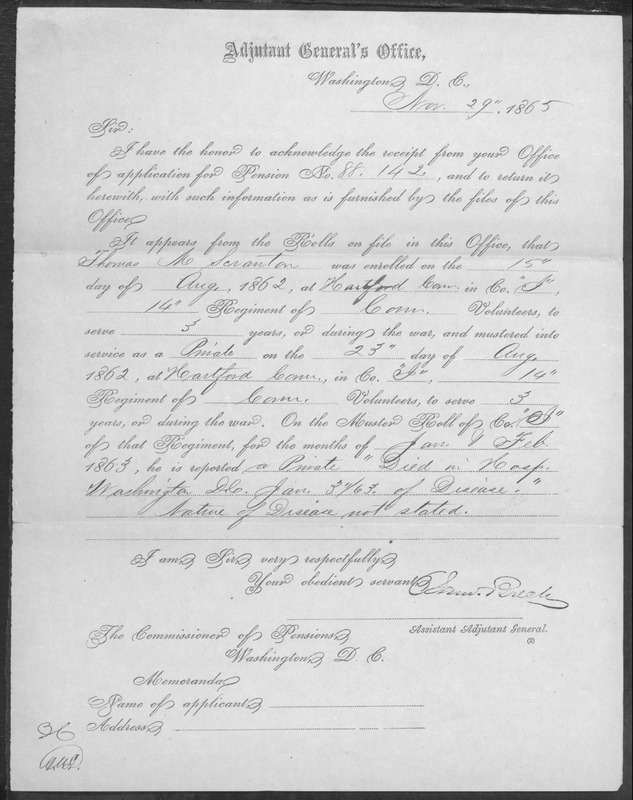 Adjutant General's Office,
Washington, D. C.,
Nov. 29", 1865
Sir:
I have the honor to acknowledge the receipt from your Office
of application for Pension No. 88.142, and to return it
herewith, with such information as is furnished by the files of this
Office.
It appears from the Rolls on file in this Office, that
Thomas M Scranton was enrolled on the 15"
day of Aug, 1862, at Hartford Conn. in Co. "I",
14" Regiment of Conn. Volunteers, to
serve 3 years, or during the war, and mustered into
service as a Private on the 23" day of Aug,
1862, at Hartford Conn., in Co. "I", 14"
Regiment of Conn. Volunteers, to serve 3
years, or during the war. On the Muster Roll of Co. "I"
of that Regiment, for the months of Jan & Feb
1863, he is reported a Private "Died in Hosp.
Washington D.C. Jan. 3"/63. of Disease."
Nature of Disease not stated.
I am, Sir, very respectfully,
Your obedient servant,
Saml. Breck
Assistant Adjutant General.
(2)
The Commissioner of Pensions,
Washington, D. C.
Memoranda,
Name of applicant,
Address,